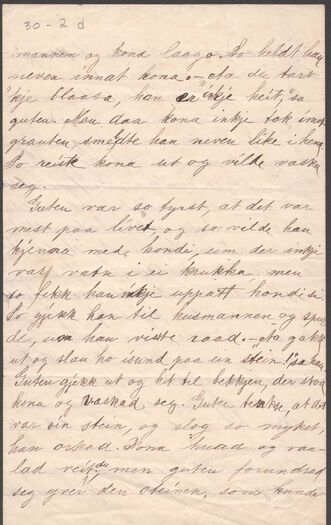 30 - 2 d
mannen og kona laago. So heldt han
neven innat kona. - Aa du tarv
'kje blaasa, han er 'kje heit, sa
guten. Men daa kona inkje tok imot
grauten, smelte han neven like i henne
So reiste kona ut og vilde vaska
seg.
Guten var so tyrst, at det var
mest paa livet, og so vilde han
kjenna med hondi, um der inkje
var vatn i ei krukka. men
so fikk han inkje uppatt hondi si
So gjekk han til husmannen og spur
de, um han visste raad. - Aa gakk
ut og slaa ho isund paa ein stein! sa han
Guten gjekk ut og kit til bekkjen, der stod
kona og vaskad seg. Guten tenkte, at det
var ein stein, og slog so mykjet,
han orkad. Kona kvad og
lad men guten forundrad
seg yver den steinen, som kunde